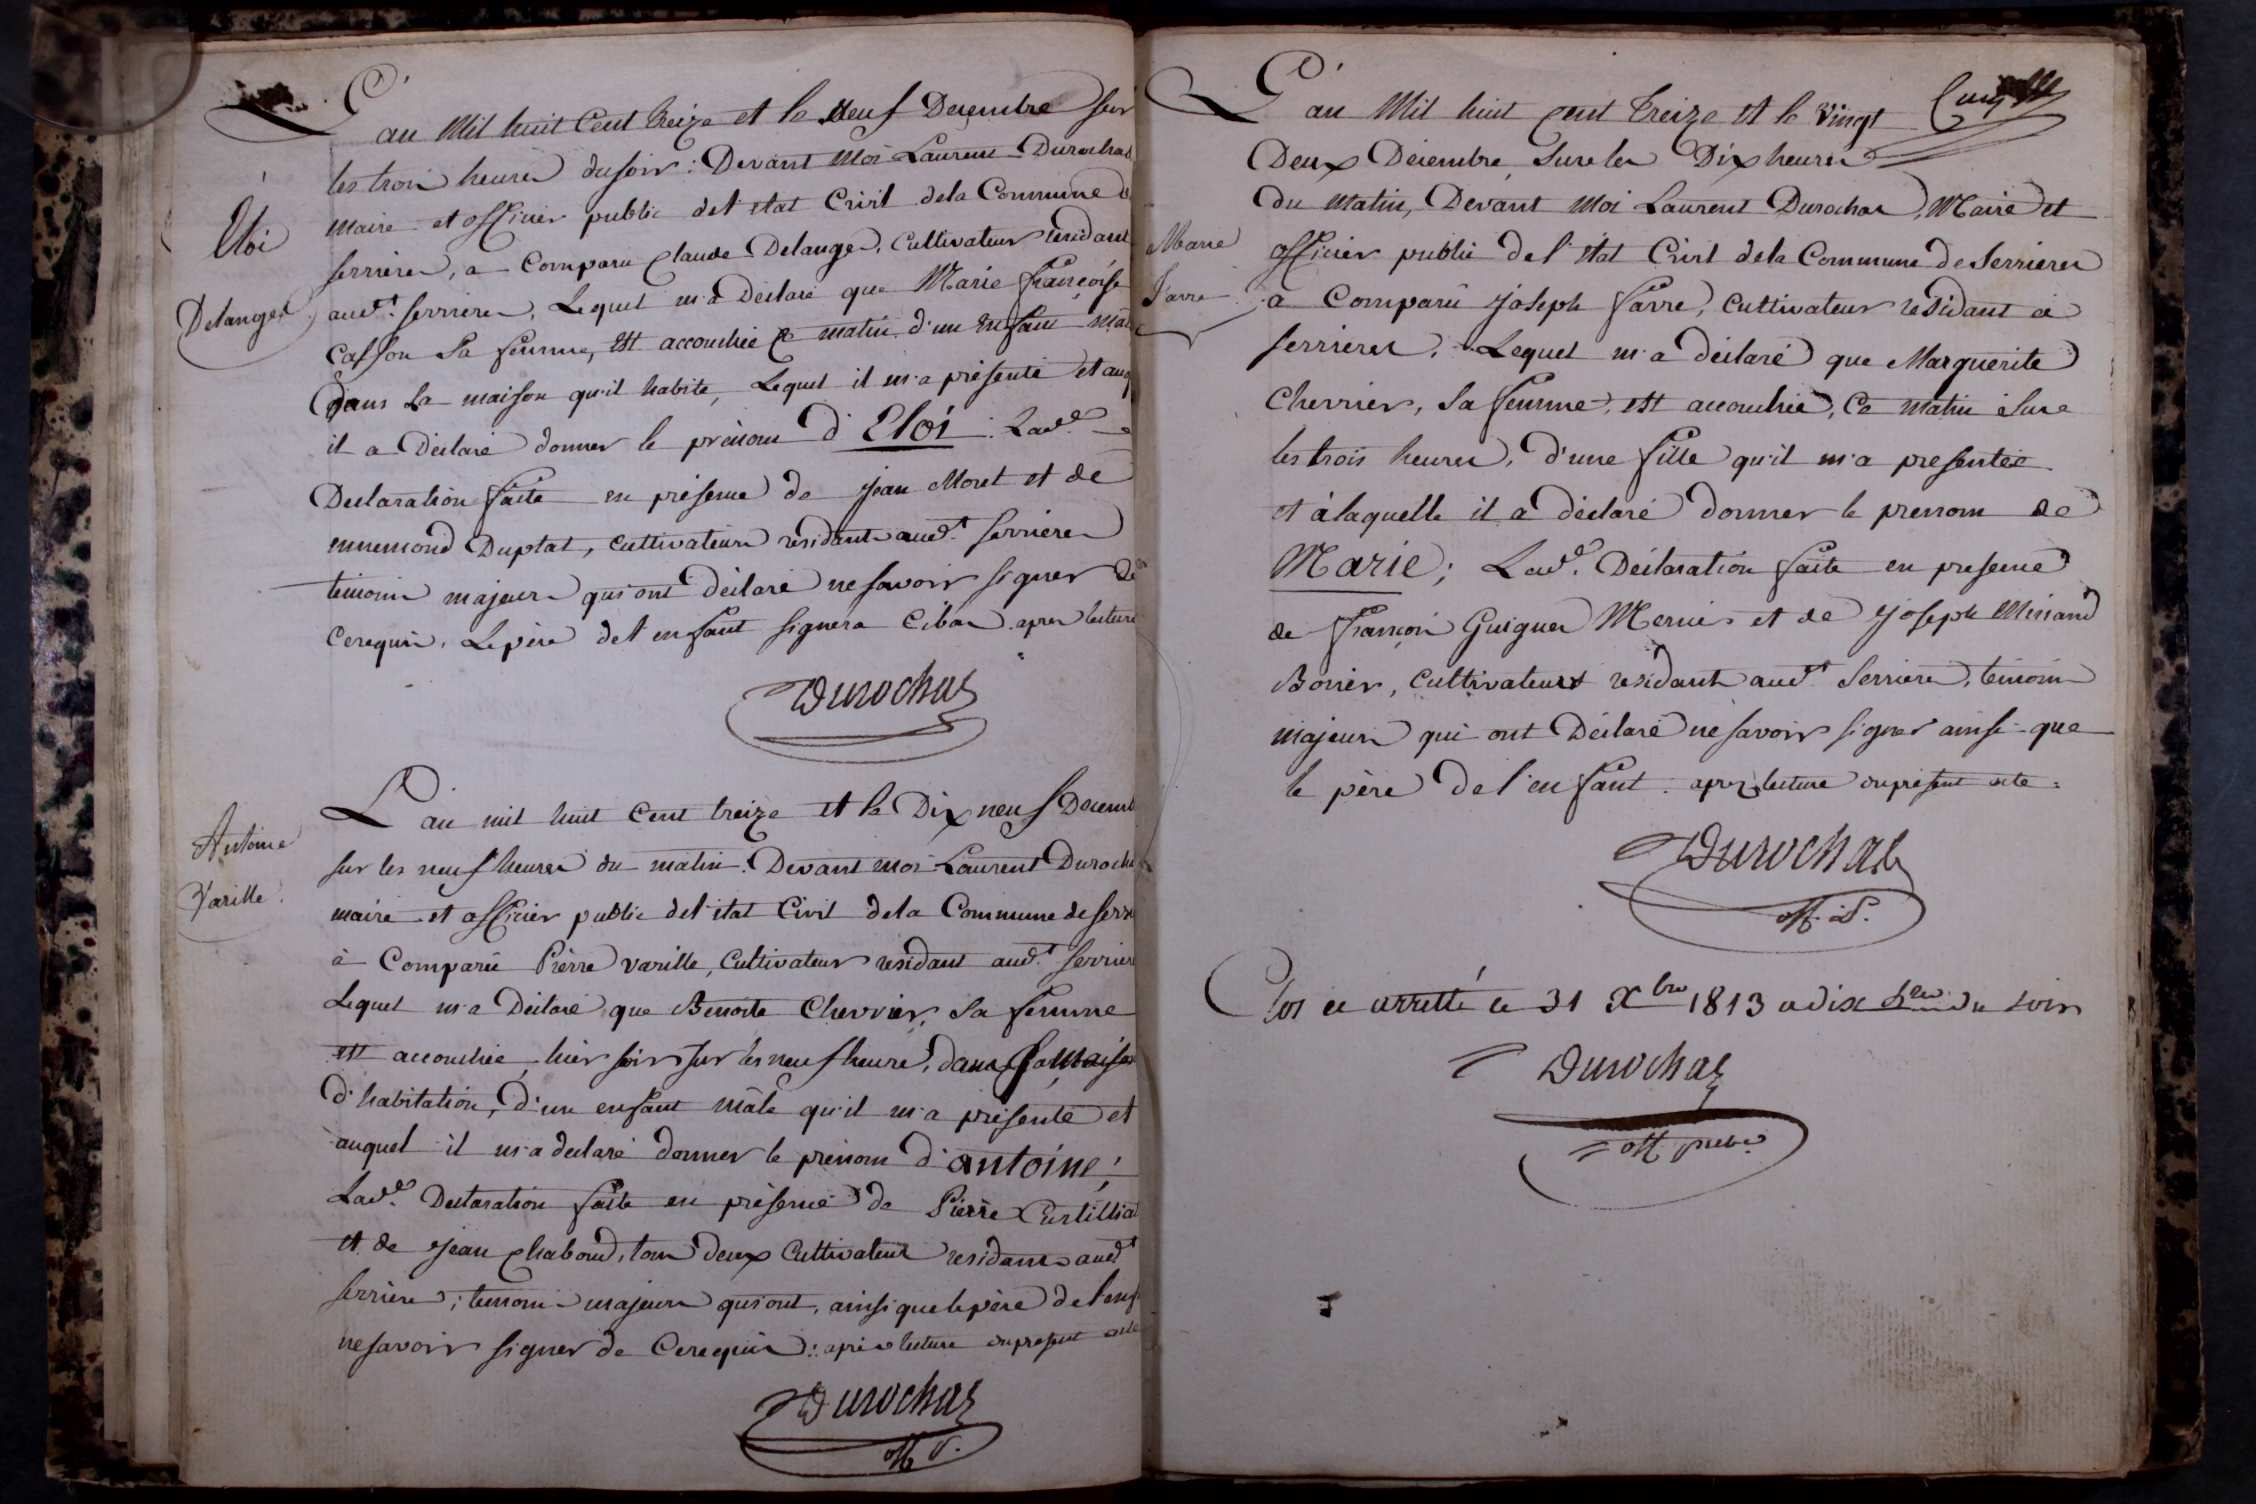 L'an mil huit Cent treize et le neuf Decembre sur
les trois heures du soir : Devant moi Laurent Durochat
maire et officier public del'état Civil dela Commune de
serrieres, a Comparu Claude Delanges, Cultivateur residant
Eloi
Delanges
aud.t serrieres, Lequel m'a Déclaré que Marie françoise
Casson sa femme, est accouchée ce matin d'un enfant male
Dans la maison qu'il habite, Lequel il m'a présenté et auq
il a Déclaré donner le prénom d'Eloi. Lad.e
Declaration faite en présence de jean Moret et de
ennemond Duplat, cultivateurs residants aud.t serrieres
temoins majeurs qui ont déclaré ne savoir signer de
Cerequis. Le père del'enfant signera apres lecture
Durochat
L'an mil huit Cent treize et le Dix neuf Decemb
Antoine
Varille
sur les neuf heures du matin. Devant moi Laurent Duroch
maire et officier public del'état Civil dela Commune de serr
à Comparu Pierre varille, Cultivateur residant aud.t serrier
Lequel m'a Déclaré que Benoite Chevrier, sa femme
est accouchée hier soir sur les neuf heures, dans sa maison
d'habitation, D'un enfant mâle qu'il m'a présenté et
auquel il m'a declaré donner le prénom d'antoine;
Lad.e Declaration faite en présence de Pierre Curtilliat
et de jean Chaboud, tous deux Cultivateurs residants aud.t
serrieres; temoins majeurs qui ont, ainsi que le père de l'enf
ne savoir signer de Cerequis : après lecture du present acte
Durochat
off. p.
L'an Mil huit Cent treize et le vingt
Deux Décembre, sur les Dix heures
du matin, Devant moi Laurent Durochat, Maire et
Marie
Favre
officier public de l'état Civil dela Commune de Serrieres
a Comparu joseph favre, Cultivateur residant à
serrieres. Lequel m'a déclaré que Marguerite
Chevrier, sa femme, est accouchée, ce matin sur
les trois heures, d'une fille qu'il m'a presentée
et à laquelle il a déclaré donner le prenom de
Marie; Lad.e Déclaration faite en presence
de françois Guigues et de joseph
cultivateurs residants aud.t serrieres, temoins
majeurs qui ont Déclaré ne savoir signer ainsi que
le père de l'enfant. après lecture du présent acte.
Durochat
off. p.
Clos et arretté ce 31 Xbre 1813 a dix hres du soir
Durochat
off. pub.